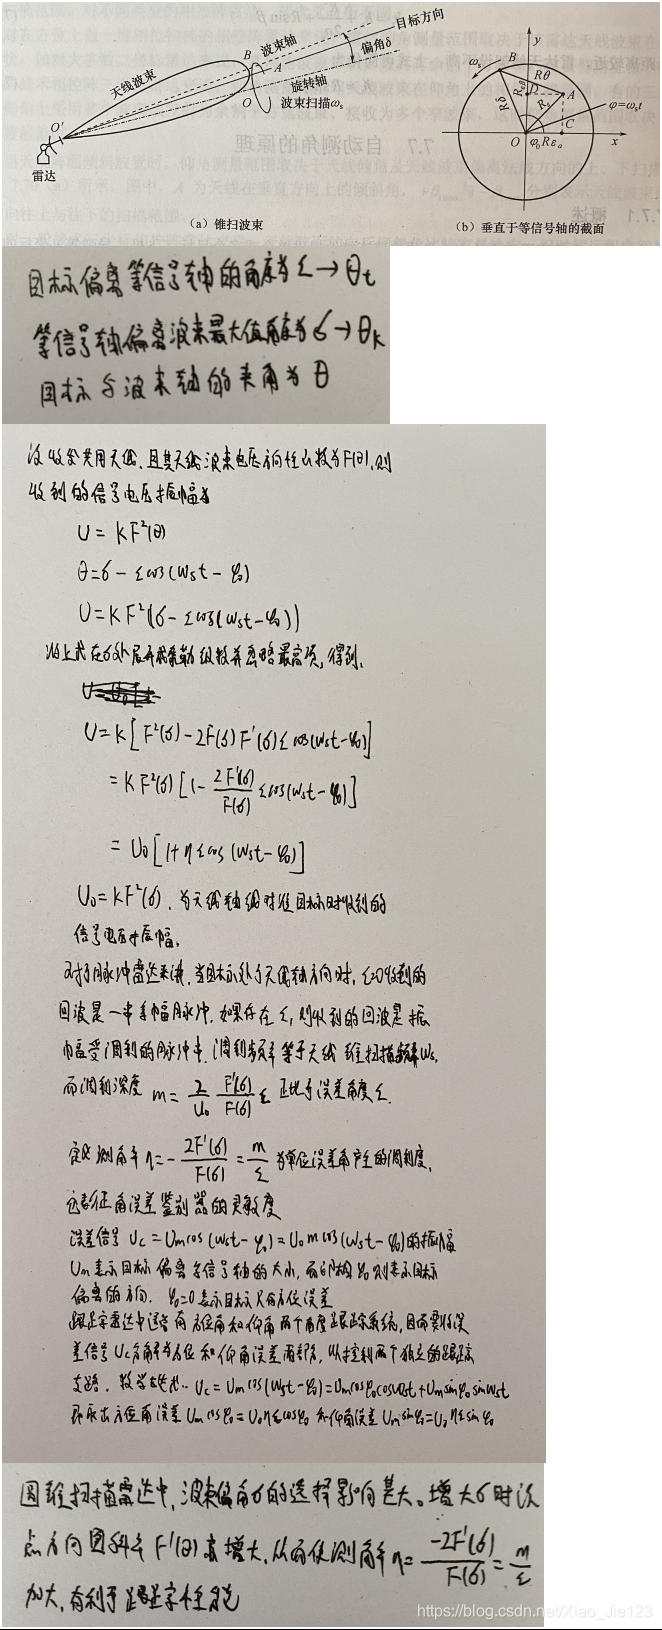 天线波束
B 波束轴
目标方向
偏角δ
A
旋转轴
O
波束扫描ωs
O′
雷达
(a) 锥扫波束
y
ωs
B
Rθ
D
A
Rδ
Rs
φ=ωst
C
O
φ0
Rεa
x
(b) 垂直于等信号轴的截面
7.7 自动测角的原理
7.7.1 概述
目标偏离等信号轴的角度为ε→θt
等信号轴偏离波束最大值角度为δ→θk
目标与波束轴的夹角为θ
设收发共用天线,且其天线波束电压方向性函数为F(θ),则
收到的信号电压振幅为
U = KF²(θ)
θ=δ-εcos(ωst-φ0)
U=KF²(δ-εcos(ωst-φ0))
将上式在δ处展开成泰勒级数并忽略最高项,得到.
U=K[F²(δ)-2F(δ)F′(δ)εcos(ωst-φ0)]
=KF²(δ)[1-2F′(δ)/F(δ) εcos(ωst-φ0)]
= U0[1+ηεcos(ωst-φ0)]
U0=KF²(δ),为天线轴线对准目标时收到的
信号电压振幅.
对于脉冲雷达来讲,当目标处于天线轴方向时,ε=0收到的
回波是一串等幅脉冲.如果存在ε,则收到的回波是振
幅受调制的脉冲串,调制频率等于天线锥扫描频率ωs,
而调制深度 m = 2/U0 F′(δ)/F(δ) ε 正比于误差角度ε.
定义测角率η=-2F′(δ)/F(δ)=m/ε为单位误差角产生的调制度,
它表征角误差鉴别器的灵敏度
误差信号 Uc=Umcos(ωst-φ0)=U0mcos(ωst-φ0)的振幅
Um表示目标偏离等信号轴的大小,而初相φ0则表示目标
偏离的方向. φ0=0表示目标只有方位误差
跟踪雷达中通常有方位角和仰角两个角度跟踪系统,因而要将误
差信号Uc分解为方位和仰角误差两部分,以控制两个独立的跟踪
支路.数学表达:Uc=Umcos(ωst-φ0)=Umcosφ0cosωst+Umsinφ0sinωst
即取出方位角误差Umcosφ0=U0ηεcosφ0和仰角误差Umsinφ0=U0ηεsinφ0
圆锥扫描雷达中,波束偏角δ的选择影响甚大。增大δ时该
点方向图斜率F′(θ)亦增大,从而使测角率η=-2F′(δ)/F(δ)=m/ε
加大,有利于跟踪性能
https://blog.csdn.net/Xiao_Jie123